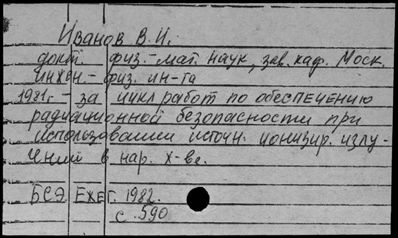 Иванов В.И.
докт. физ.-мат. наук, зав. каф. Моск.
инжен.-физ. ин-та
1981г. - за цикл работ по обеспечению
радиационной безопасности при
использовании источн. ионизир. излу-
чений в нар. х-ве.
БСЭ Ежег. 1982.
с. 590